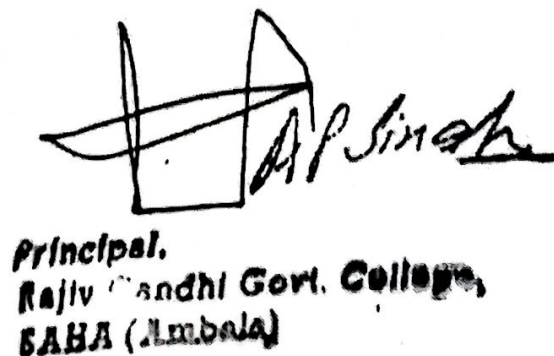 AP Singh
Principal,
Rajiv Gandhi Govt. College,
SAHA (Ambala)